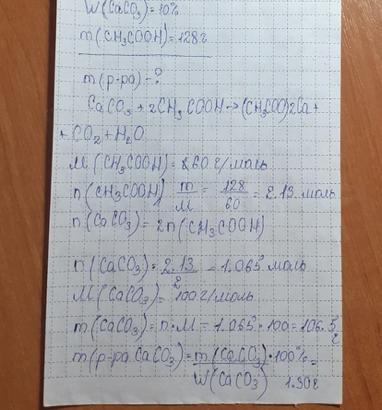 W(CaCO₃)=10%
m(CH₃COOH)=128г
m(р-ра)-?
CaCO₃+2CH₃COOH→(CH₃COO)2Ca+
+CO₂+H₂O
M(CH₃COOH)=60г/моль
n(CH₃COOH) m/M=128/60=2.13.моль
n(CaCO₃)=2n(CH₃COOH)
n(CaCO₃)=2.13/2=1.065моль
M(CaCO₃)=100г/моль
m(CaCO₃)=n·M=1.065·100=106.5г
m(р-ра CaCO₃)=m(CaCO₃)/W(CaCO₃)·100%=